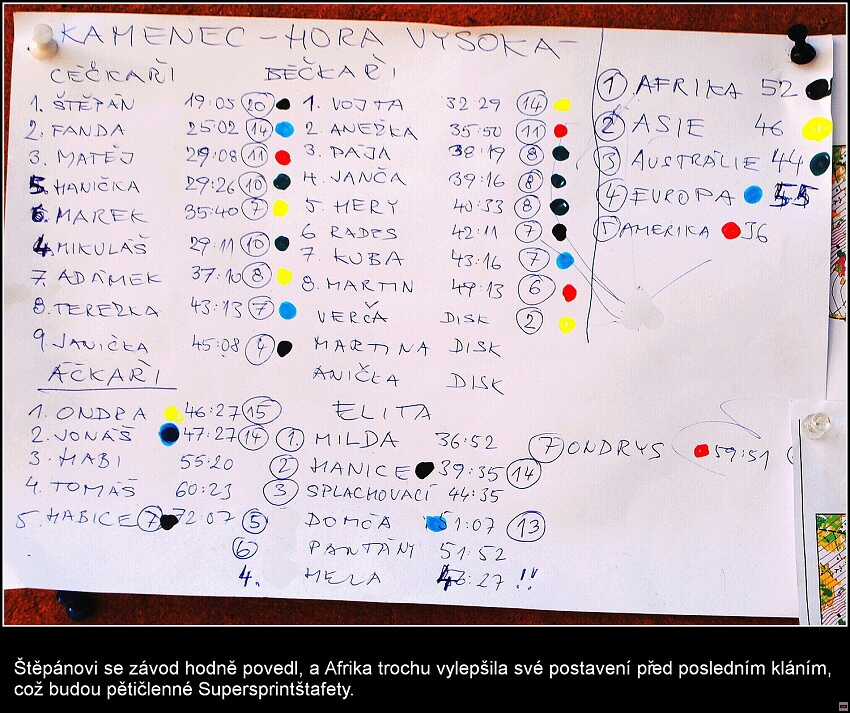 KAMENEC - HORA VYSOKA -
CÉČKAŘI
1. ŠTĚPÁN 19:05 20
2. FANDA 25:02 14
3. MATĚJ 29:08 11
5. HANIČKA 29:26 10
6. MAREK 35:40 7
4. MIKULÁŠ 29:11 10
7. ADÁMEK 37:10 8
8. TEREZKA 43:13 7
9. JANIČKA 45:08 4
BÉČKAŘI
1. VOJTA 32 29 14
2. ANEŽKA 35:50 11
3. PÁJA 38:19 8
4. JANČA 39:16 8
5. HERY 40:33 8
6 RADES 42:11 7
7. KUBA 43:16 7
8. MARTIN 49:13 6
VERČA DISK 2
MARTINA DISK
ANIČKA DISK
1 AFRIKA 52
2 ASIE 46
3 AUSTRÁLIE 44
4 EVROPA
5 AMERIKA 36
ÁČKAŘI
1. ONDRA 46:27 15
2. JONÁŠ 47:27 14
3. HABI 55:20
4. TOMÁŠ 60:23
5. HABICE 7 72:07
ELITA
1. MILDA 36:52
2 HANICE 39:35 14
3 SPLACHOVACÍ 44:35
5 DOMČA 51:07 13
6 PANTÁNY 51:52
4. HELA 46:27 !!
7 ONDRYS 59:51
Štěpánovi se závod hodně povedl, a Afrika trochu vylepšila své postavení před posledním kláním,
což budou pětičlenné Supersprintštafety.